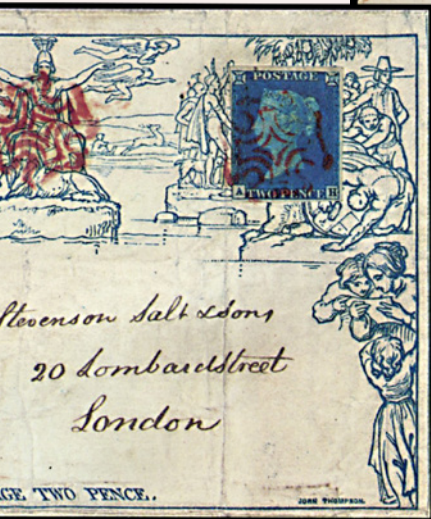 POSTAGE
A TWO PENCE H
Stevenson Salt & Sons
20 Lombardstreet
London
GE TWO PENCE.
JOHN THOMPSON.